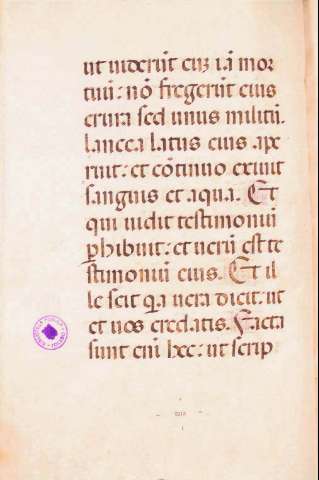 ut viderūt eū iā mor
tuū: nō fregerūt eius
crura sed unus militū.
lancea latus eius ape
ruit: et cōtinuo exiuit
sanguis et aqua. Et
qui uidit testimoniū
phibuit: et uerū est te
stimoniū eius. Et il
le scit qa uera dicit: ut
et uos credatis. Facta
sunt eni hec: ut scrip